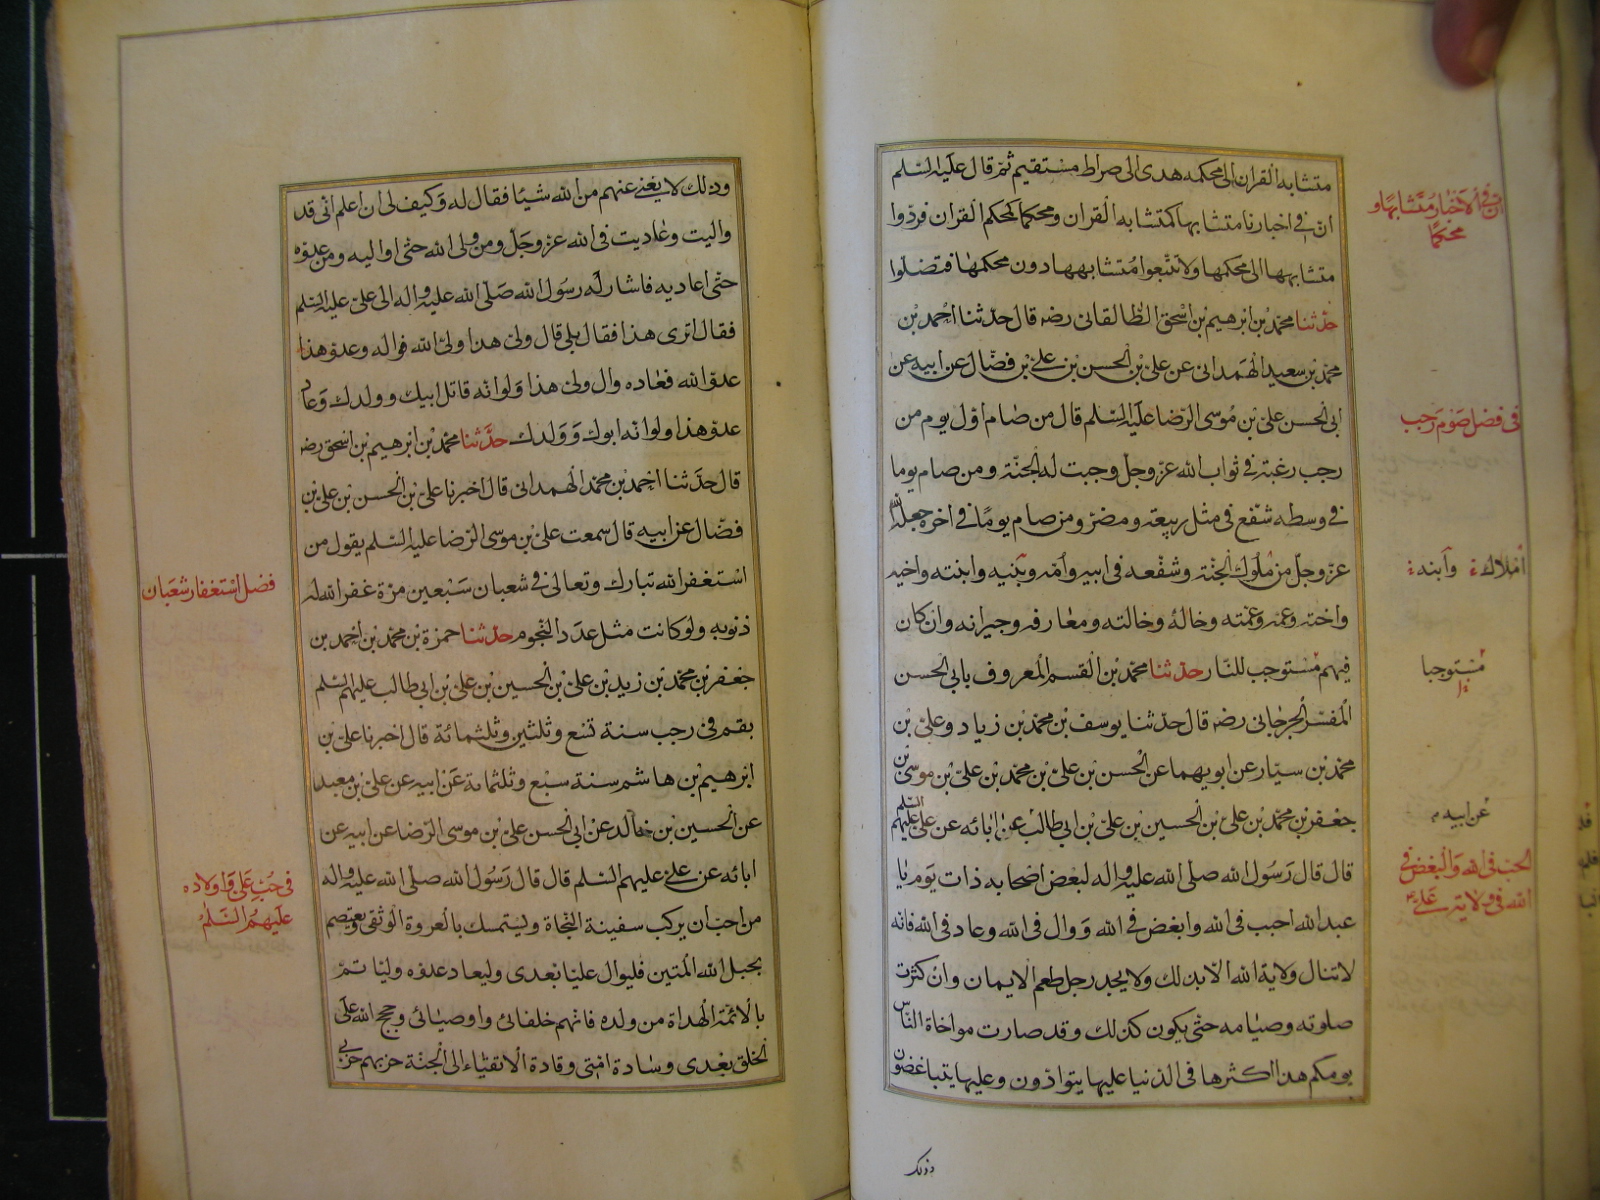 متشابه القران الى محكمه هدى الى صراط مستقيم ثم قال عليه السلم
ان في اخبارنا متشابها كمتشابه القران ومحكما كمحكم القران فردوا
متشابهها الى محكمها ولا تتبعوا متشابهها دون محكمها فتضلوا
حدثنا محمد بن ابرهيم بن اسحق الطالقانى رضه قال حدثنا احمد بن
محمد بن سعيد الهمدانى عن على بن الحسن بن على بن فضال عن ابيه عن
ابى الحسن على بن موسى الرضا عليه السلم قال من صام اول يوم من
رجب رغبة في ثواب الله عز وجل وجبت له الجنة ومن صام يوما
في وسطه شفع في مثل ربيعة ومضر ومن صام يوما في اخره جعله الله
عز وجل من ملوك الجنة وشفعه فى ابيه وامه وبنيه وابنته واخيه
واخته وعمه وعمته وخاله وخالته ومعارفه وجيرانه وان كان
فيهم مستوجب للنار حدثنا محمد بن القسم المعروف بابى الحسن
المفسر الجرجانى رضه قال حدثنا يوسف بن محمد بن زياد وعلى بن
محمد بن سيار عن ابويهما عن الحسن بن على بن محمد بن على بن موسى بن
جعفر بن محمد بن على بن الحسين بن على بن ابى طالب عن ابائه عن على عليهم السلم
قال قال رسول الله صلى الله عليه واله لبعض اصحابه ذات يوم يا
عبد الله احبب فى الله وابغض في الله ووال فى الله وعاد فى الله فانه
لا تنال ولاية الله الا بذلك ولا يجد رجل طعم الايمان وان كثرت
صلوته وصيامه حتى يكون كذلك وقد صارت مواخاة الناس
يومكم هذا اكثرها فى الدنيا عليها يتوادون وعليها يتباغضون
وذلك
ان في الاخبار متشابها و
محكما
فى فضل صوم رجب
املاك وابنه
مستوجبا
عن ابيه
الحب فى الله والبغض في
الله فى ولاية على
وذلك لا يغنى عنهم من الله شيئا فقال له وكيف لى ان اعلم انى قد
واليت وعاديت فى الله عز وجل ومن ولى الله حتى اواليه ومن عدوه
حتى اعاديه فاشار له رسول الله صلى الله عليه واله الى على عليه السلم
فقال اترى هذا فقال بلى قال ولى هذا ولى الله فواله وعدو هذا
عدو الله فعاده وال ولى هذا ولو انه قاتل ابيك وولدك وعاد
عدو هذا ولو انه ابوك وولدك حدثنا محمد بن ابرهيم بن اسحق رضه
قال حدثنا احمد بن محمد الهمدانى قال اخبرنا على بن الحسن بن على بن
فضال عن ابيه قال سمعت على بن موسى الرضا عليه السلم يقول من
استغفر الله تبارك وتعالى في شعبان سبعين مرة غفر الله له
ذنوبه ولو كانت مثل عدد النجوم حدثنا حمزة بن محمد بن احمد بن
جعفر بن محمد بن زيد بن على بن الحسين بن على بن ابى طالب عليهم السلم
بقم فى رجب سنة تسع وثلثين وثلثمائة قال اخبرنا على بن
ابرهيم بن هاشم سنة سبع وثلثمائة عن ابيه عن على بن معبد
عن الحسين بن خالد عن ابى الحسن على بن موسى الرضا عن ابيه عن
ابائه عن على عليهم السلم قال قال رسول الله صلى الله عليه واله
من احب ان يركب سفينة النجاة ويستمسك بالعروة الوثقى ويعتصم
بحبل الله المتين فليوال عليا بعدى وليعاد عدوه وليأتم
بالائمة الهداة من ولده فانهم خلفائى واوصيائى وحجج الله على
الخلق بعدى وسادة امتى وقادة الاتقياء الى الجنة حزبهم حزبى
فضل استغفار شعبان
فى حب على واولاده
عليهم السلم